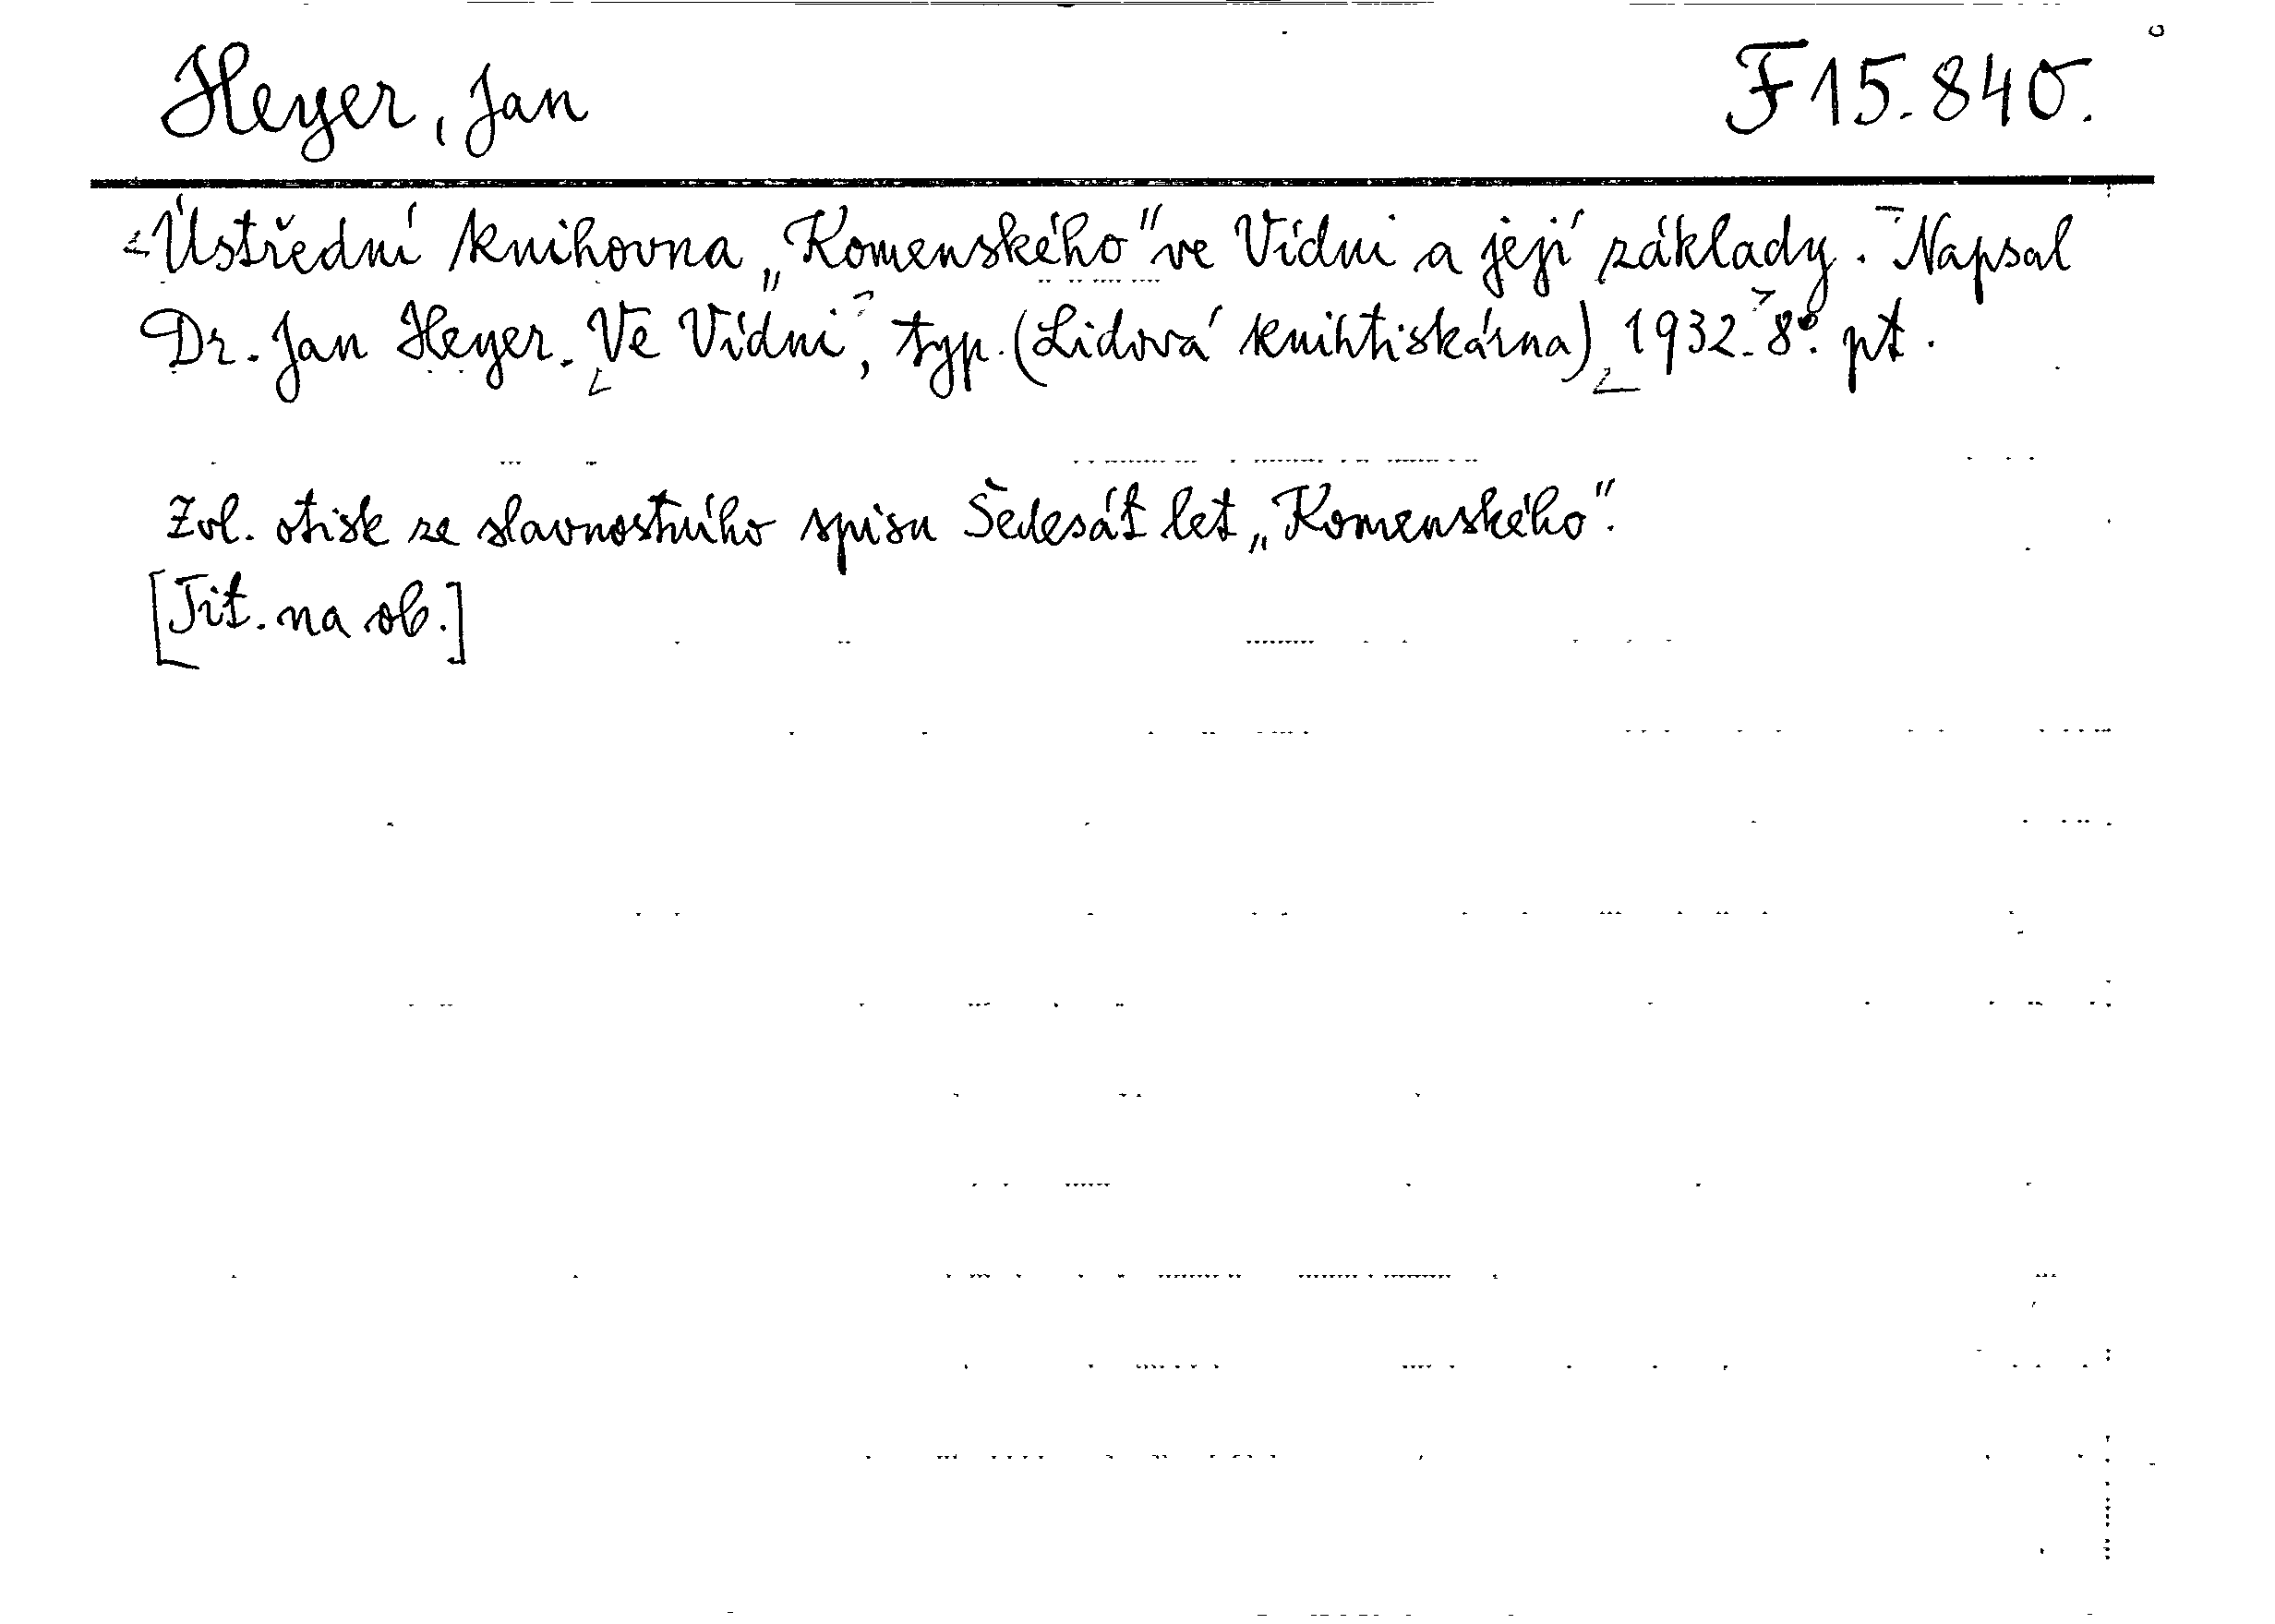 Heyer, Jan
F 15.840.
Ústřední knihovna „Komenského" ve Vídni a její základy. Napsal
Dr. Jan Heyer. Ve Vídni, typ. (Lidová knihtiskárna) 1932. 8º. pt.
Zvl. otisk ze slavnostního spisu Šedesát let „Komenského".
[Tit. na ob.]